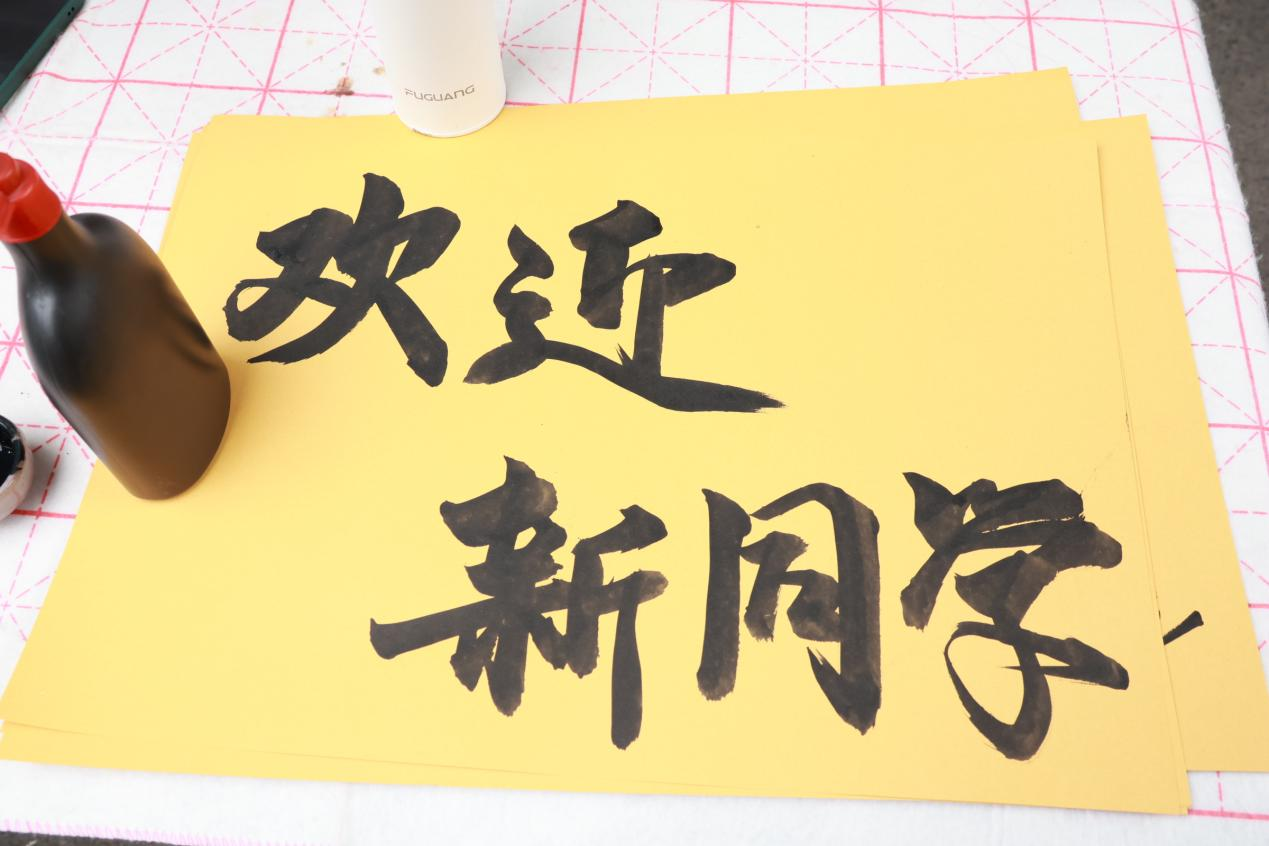 FUGUANG
欢迎
新同学